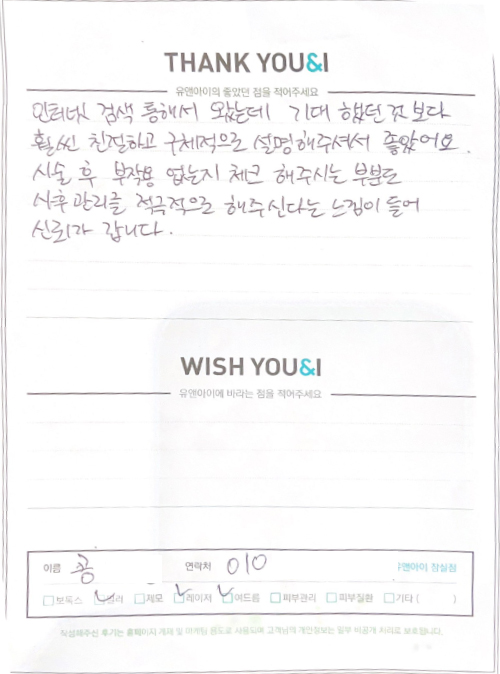 THANK YOU&I
유앤아이의 좋았던 점을 적어주세요
인터넷 검색 통해서 왔는데 기대 했던 것 보다
훨씬 친절하고 구체적으로 설명해주셔서 좋았어요.
시술 후 부작용 없는지 체크 해주시는 부분도
사후관리를 적극적으로 해주신다는 느낌이 들어
신뢰가 갑니다.
WISH YOU&I
유앤아이에 바라는 점을 적어주세요
이름 공 연락처 010 유앤아이 잠실점
보톡스 필러 제모 레이저 여드름 피부관리 피부질환 기타 ( )
작성해주신 후기는 홈페이지 게재 및 마케팅 용도로 사용되며 고객님의 개인정보는 일부 비공개 처리로 보호됩니다.